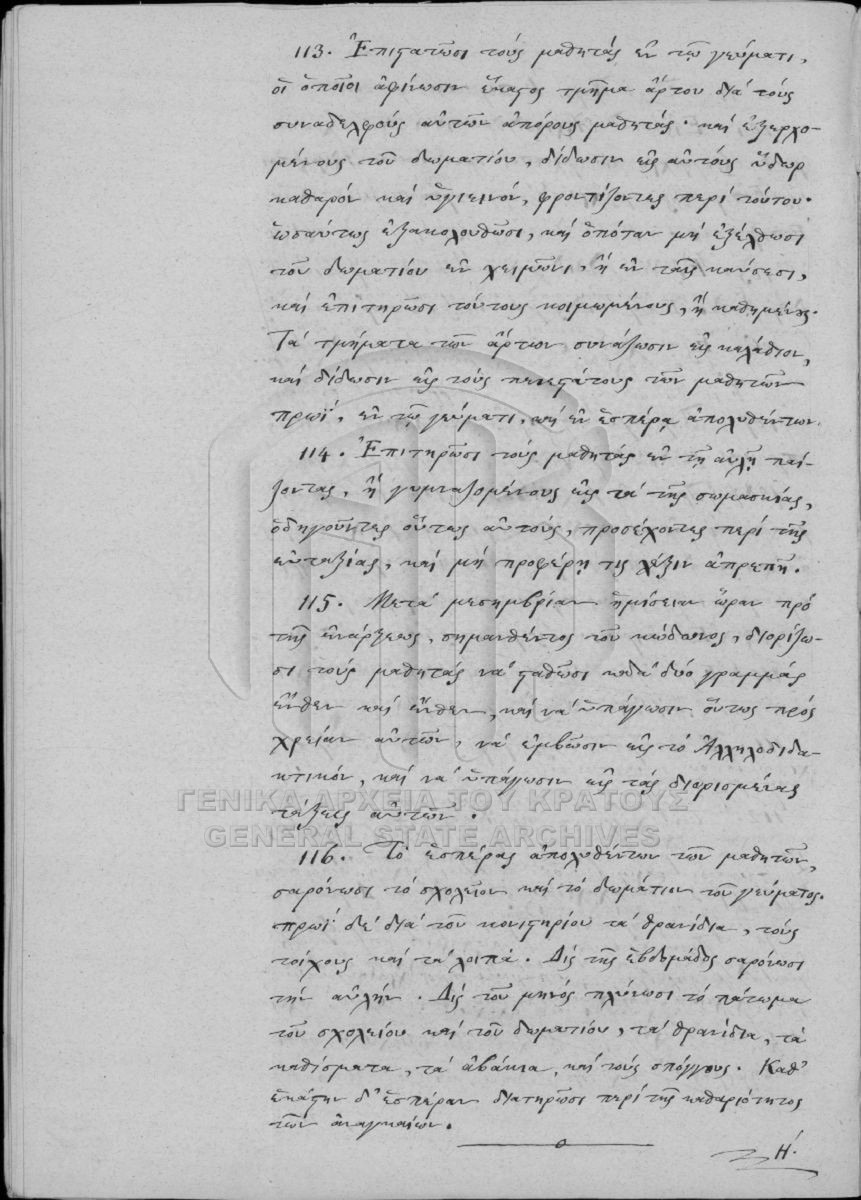 113. Ἐπιστατῶσι τούς μαθητάς ἐν τῷ γεύματι,
οἵ ὁποῖοι ἀφίνωσιν ἕκαστος τμῆμα ἄρτου διά τούς
συναδελφούς αὐτῶν ἀπόρους μαθητάς· καί ἐξερχο-
μένους τοῦ δωματίου, δίδωσιν εἰς αὐτούς ὕδωρ
καθαρόν καί ὑγιεινόν, φροντίζοντες περί τούτου·
ὡσαύτως ἐξακολουθῶσι, καί ὁπόταν μή ἐξέλθωσι
τοῦ δωματίου ἐν χειμῶνι, ἤ ἐν ταῖς καύσεσι,
καί ἐπιτηρῶσι τούτους κοιμωμένους, ἤ καθημένους.
Τά τμήματα τῶν ἄρτων συνάζωσιν εἰς καλάθιον,
καί δίδωσιν εἰς τούς πενεστάτους τῶν μαθητῶν
πρωΐ, ἐν τῷ γεύματι, καί ἐν ἑσπέρᾳ ἀπολυθέντων.
114. Ἐπιτηρῶσι τούς μαθητάς ἐν τῇ αὐλῇ παί-
ζοντας, ἤ γυμναζομένους εἰς τά τῆς σωμασκίας,
ὁδηγοῦντες οὕτως αὐτούς, προσέχοντες περί τῆς
εὐταξίας, καί μή προφέρῃ τις λέξιν ἀπρεπῆ.
115. Μετά μεσημβρίαν ἡμίσειαν ὥραν πρό
τῆς ἐνάρξεως, σημανθέντος τοῦ κώδωνος, διορίζω-
σι τούς μαθητάς νά σταθῶσι κατά δύο γραμμάς
ἔνθεν καί ἔνθεν, καί νά ὑπάγωσιν οὕτως πρός
χρείαν αὐτῶν, νά ἐμβῶσιν εἰς τό Ἀλληλοδιδα-
κτικόν, καί νά ὑπάγωσιν εἰς τάς διορισμένας
τάξεις αὐτῶν.
ΓΕΝΙΚΑ ΑΡΧΕΙΑ ΤΟΥ ΚΡΑΤΟΥΣ
GENERAL STATE ARCHIVES
116. Τό ἑσπέρας ἀπολυθέντων τῶν μαθητῶν,
σαρόνωσι τό σχολεῖον καί τό δωμάτιον τοῦ γεύματος.
πρωΐ δέ διά τοῦ κονιστηρίου τά θρανίδια, τούς
τοίχους καί τά λοιπά. Δίς τῆς ἑβδομάδος σαρόνωσι
τήν αὐλήν. Δίς τοῦ μηνός πλύνωσι τό πάτωμα
τοῦ σχολείου καί τοῦ δωματίου, τά θρανίδια, τά
καθίσματα, τά ἀβάκια, καί τούς σπόγγους. Καθ'
ἑκάστην δ' ἑσπέραν διατηρῶσι περί τῆς καθαριότητος
τῶν ἀναγκαίων.
Η.